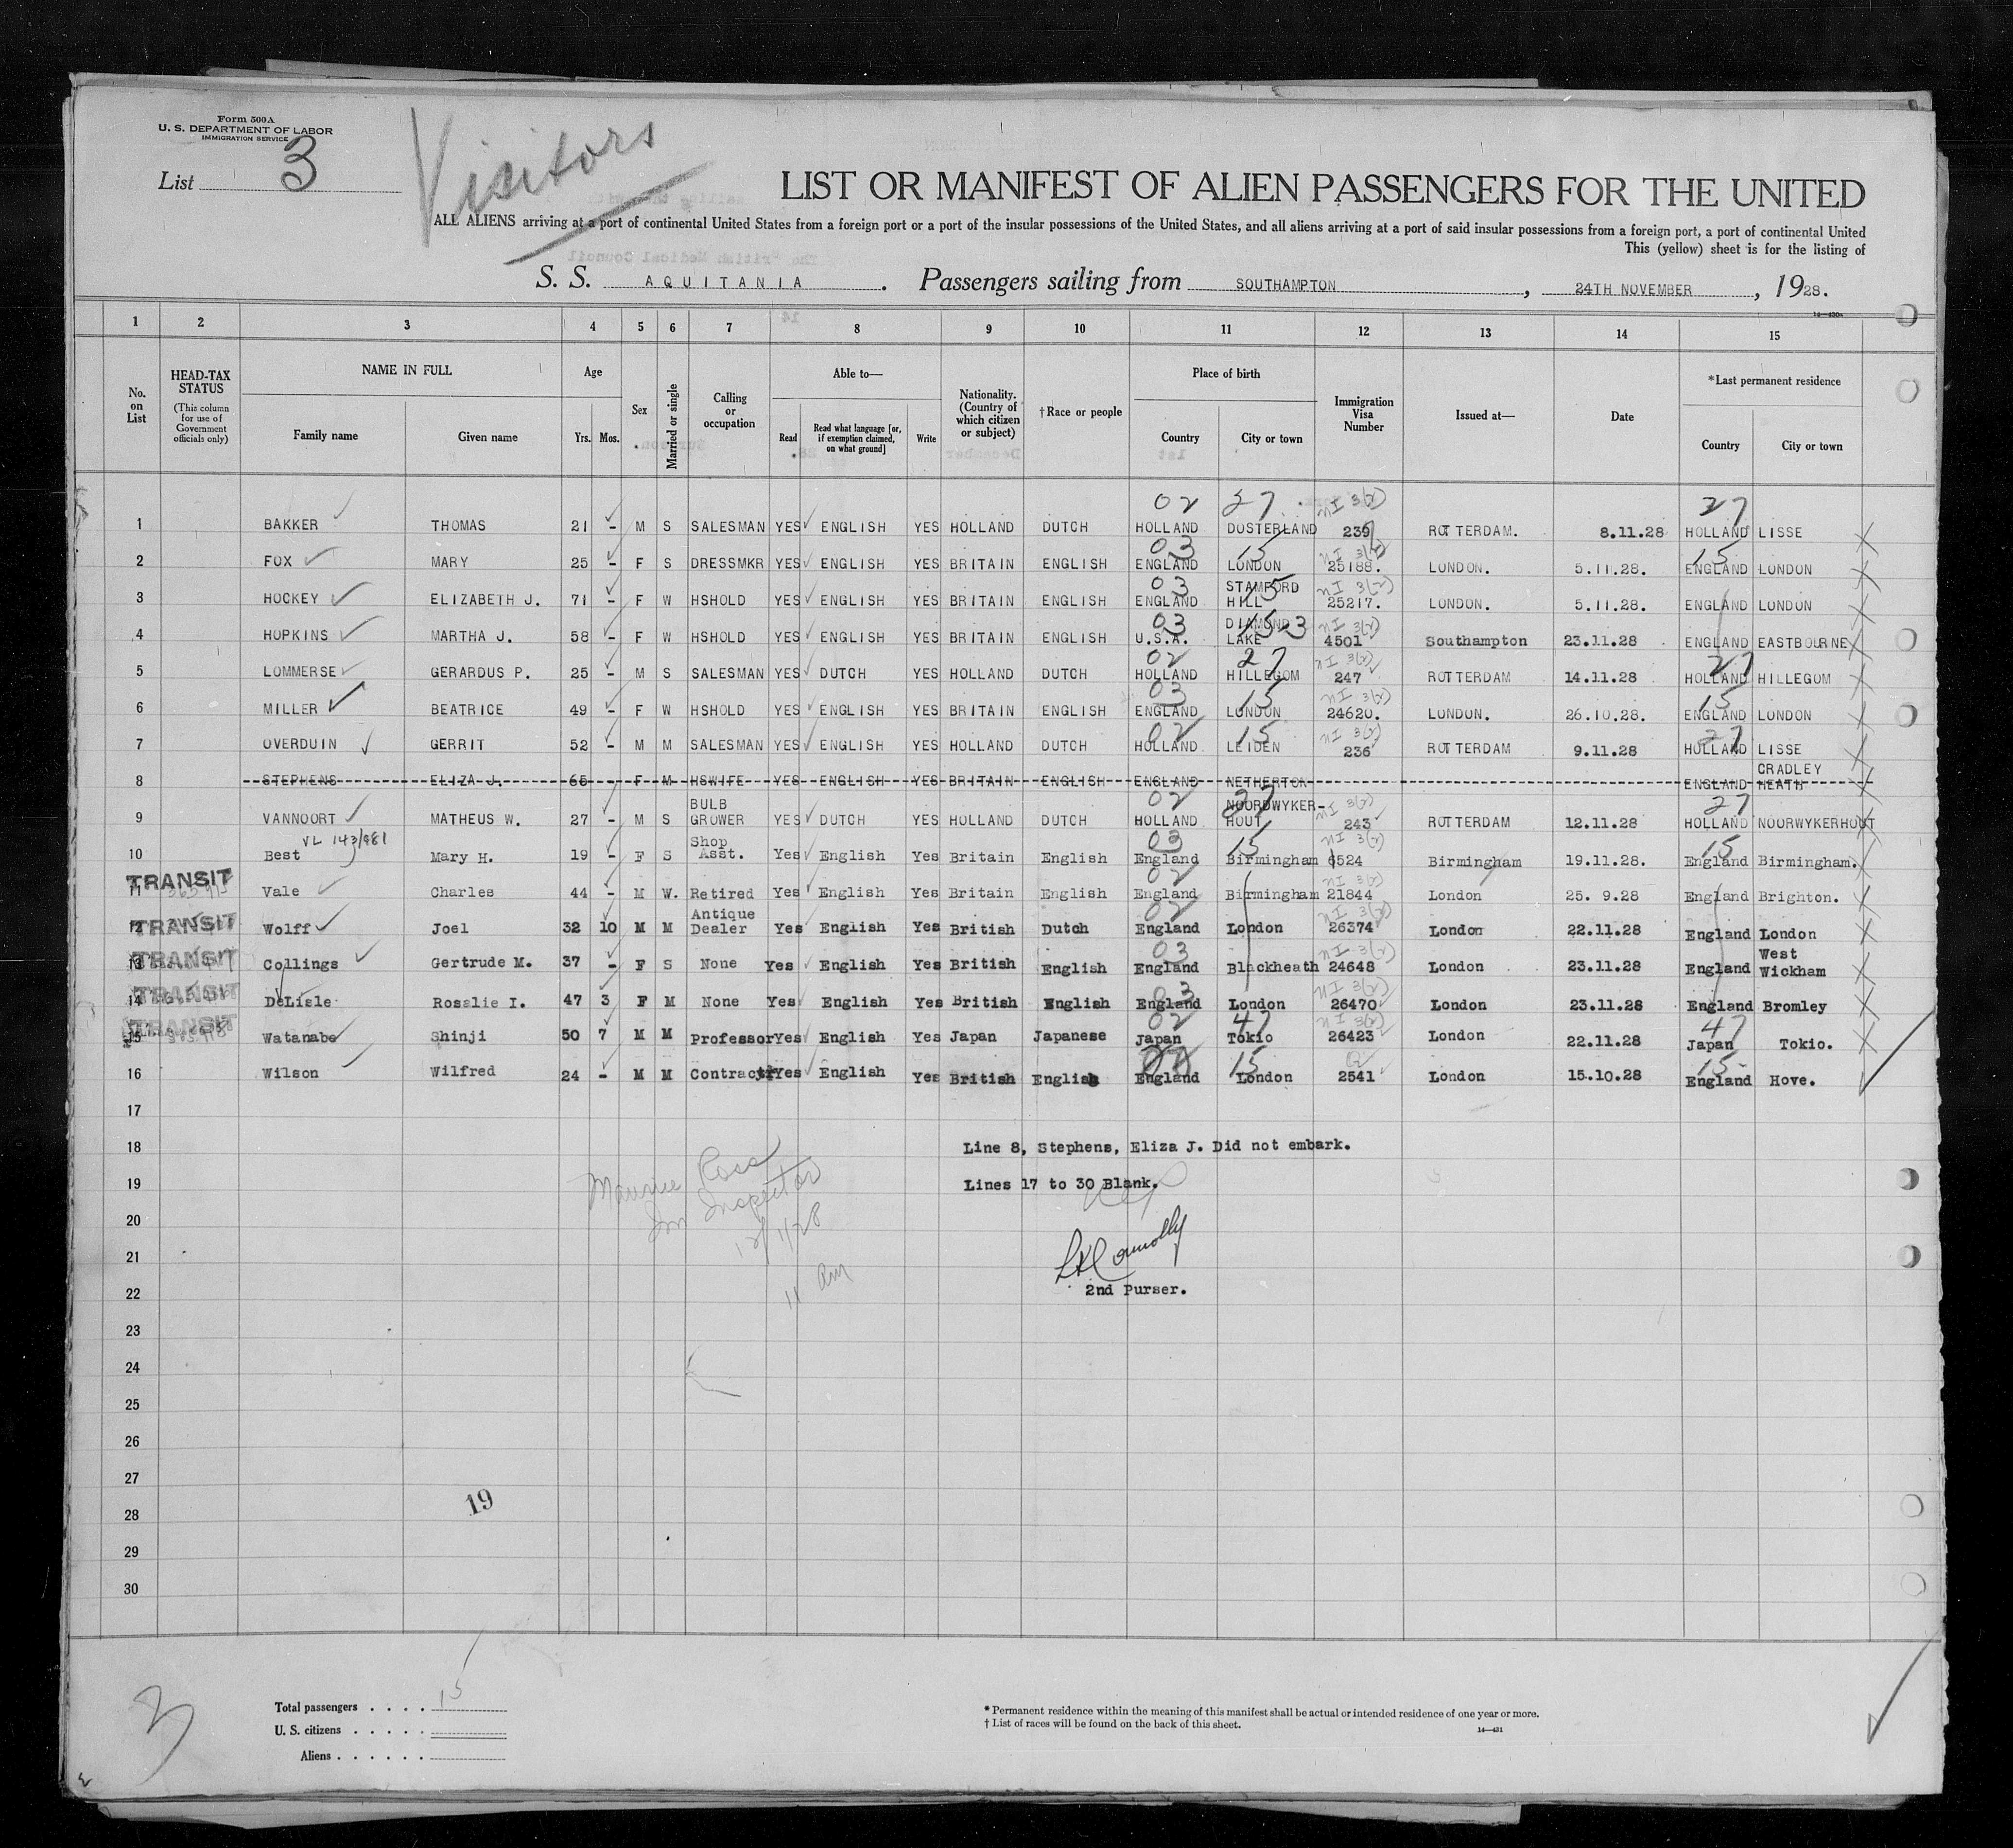 Form 500A
U. S. DEPARTMENT OF LABOR
IMMIGRATION SERVICE
List 3
Visitors
LIST OR MANIFEST OF ALIEN PASSENGERS FOR THE UNITED
ALL ALIENS arriving at a port of continental United States from a foreign port or a port of the insular possessions of the United States, and all aliens arriving at a port of said insular possessions from a foreign port, a port of continental United
This (yellow) sheet is for the listing of
S. S. AQUITANIA. Passengers sailing from SOUTHAMPTON, 24TH NOVEMBER, 1928.
1 2 3 4 5 6 7 8 9 10 11 12 13 14 15
No. on List
HEAD-TAX STATUS (This column for use of Government officials only)
NAME IN FULL Family name Given name
Age Yrs. Mos.
Sex
Married or single
Calling or occupation
Able to— Read Read what language [or, if exemption claimed, on what ground] Write
Nationality. (Country of which citizen or subject)
†Race or people
Place of birth Country City or town
Immigration Visa Number
Issued at—
Date
*Last permanent residence Country City or town
02 27 NI 3(2) 27
1 BAKKER THOMAS 21 - M S SALESMAN YES ENGLISH YES HOLLAND DUTCH HOLLAND OOSTERLAND 239 ROTTERDAM. 8.11.28 HOLLAND LISSE
03 15 NI 3(2) 15
2 FOX MARY 25 - F S DRESSMKR YES ENGLISH YES BRITAIN ENGLISH ENGLAND LONDON 25188. LONDON. 5.11.28. ENGLAND LONDON
03 15 NI 3(2)
3 HOCKEY ELIZABETH J. 71 - F W HSHOLD YES ENGLISH YES BRITAIN ENGLISH ENGLAND STAMFORD HILL 25217. LONDON. 5.11.28. ENGLAND LONDON
03 15-3 NI 3(2)
4 HOPKINS MARTHA J. 58 - F W HSHOLD YES ENGLISH YES BRITAIN ENGLISH U.S.A. DIAMOND LAKE 4501 Southampton 23.11.28 ENGLAND EASTBOURNE
02 27 NI 3(2) 27
5 LOMMERSE GERARDUS P. 25 - M S SALESMAN YES DUTCH YES HOLLAND DUTCH HOLLAND HILLEGOM 247 ROTTERDAM 14.11.28 HOLLAND HILLEGOM
03 15 NI 3(2) 15
6 MILLER BEATRICE 49 - F W HSHOLD YES ENGLISH YES BRITAIN ENGLISH ENGLAND LONDON 24620. LONDON. 26.10.28. ENGLAND LONDON
02 15 NI 3(2) 27
7 OVERDUIN GERRIT 52 - M M SALESMAN YES ENGLISH YES HOLLAND DUTCH HOLLAND LEIDEN 236 ROTTERDAM 9.11.28 HOLLAND LISSE
8 STEPHENS ELIZA J. 65 - F M HSWIFE YES ENGLISH YES BRITAIN ENGLISH ENGLAND NETHERTON ENGLAND CRADLEY HEATH
02 27 NI 3(2) 27
9 VANNOORT MATHEUS W. 27 - M S BULB GROWER YES DUTCH YES HOLLAND DUTCH HOLLAND NOORDWYKER-HOUT 243 ROTTERDAM 12.11.28 HOLLAND NOORWYKERHOUT
VL 143/981 03 15 NI 3(2) 15
10 Best Mary H. 19 - F S Shop Asst. Yes English Yes Britain English England Birmingham 6524 Birmingham 19.11.28. England Birmingham.
TRANSIT 02 NI 3(2)
11 Vale Charles 44 - M W. Retired Yes English Yes Britain English England Birmingham 21844 London 25. 9.28 England Brighton.
TRANSIT 02 NI 3(2)
12 Wolff Joel 32 10 M M Antique Dealer Yes English Yes British Dutch England London 26374 London 22.11.28 England London
TRANSIT 03 NI 3(2)
13 Collings Gertrude M. 37 - F S None Yes English Yes British English England Blackheath 24648 London 23.11.28 England West Wickham
TRANSIT 03 NI 3(2)
14 DeLisle Rosalie I. 47 3 F M None Yes English Yes British English England London 26470 London 23.11.28 England Bromley
TRANSIT 02 47 NI 3(2) 47
15 Watanabe Shinji 50 7 M M Professor Yes English Yes Japan Japanese Japan Tokio 26423 London 22.11.28 Japan Tokio.
15 15
16 Wilson Wilfred 24 - M M Contractr Yes English Yes British English England London 2541 London 15.10.28 England Hove.
17
18 Line 8, Stephens, Eliza J. Did not embark.
19 Lines 17 to 30 Blank.
Maurice Ross
Im Inspector
12/1/28
11 am
20
21
22 2nd Purser.
23
24
25
26
27
28
19
29
30
3
Total passengers . . . . 15
U. S. citizens . . . . .
Aliens . . . . . .
*Permanent residence within the meaning of this manifest shall be actual or intended residence of one year or more.
†List of races will be found on the back of this sheet.
14—431